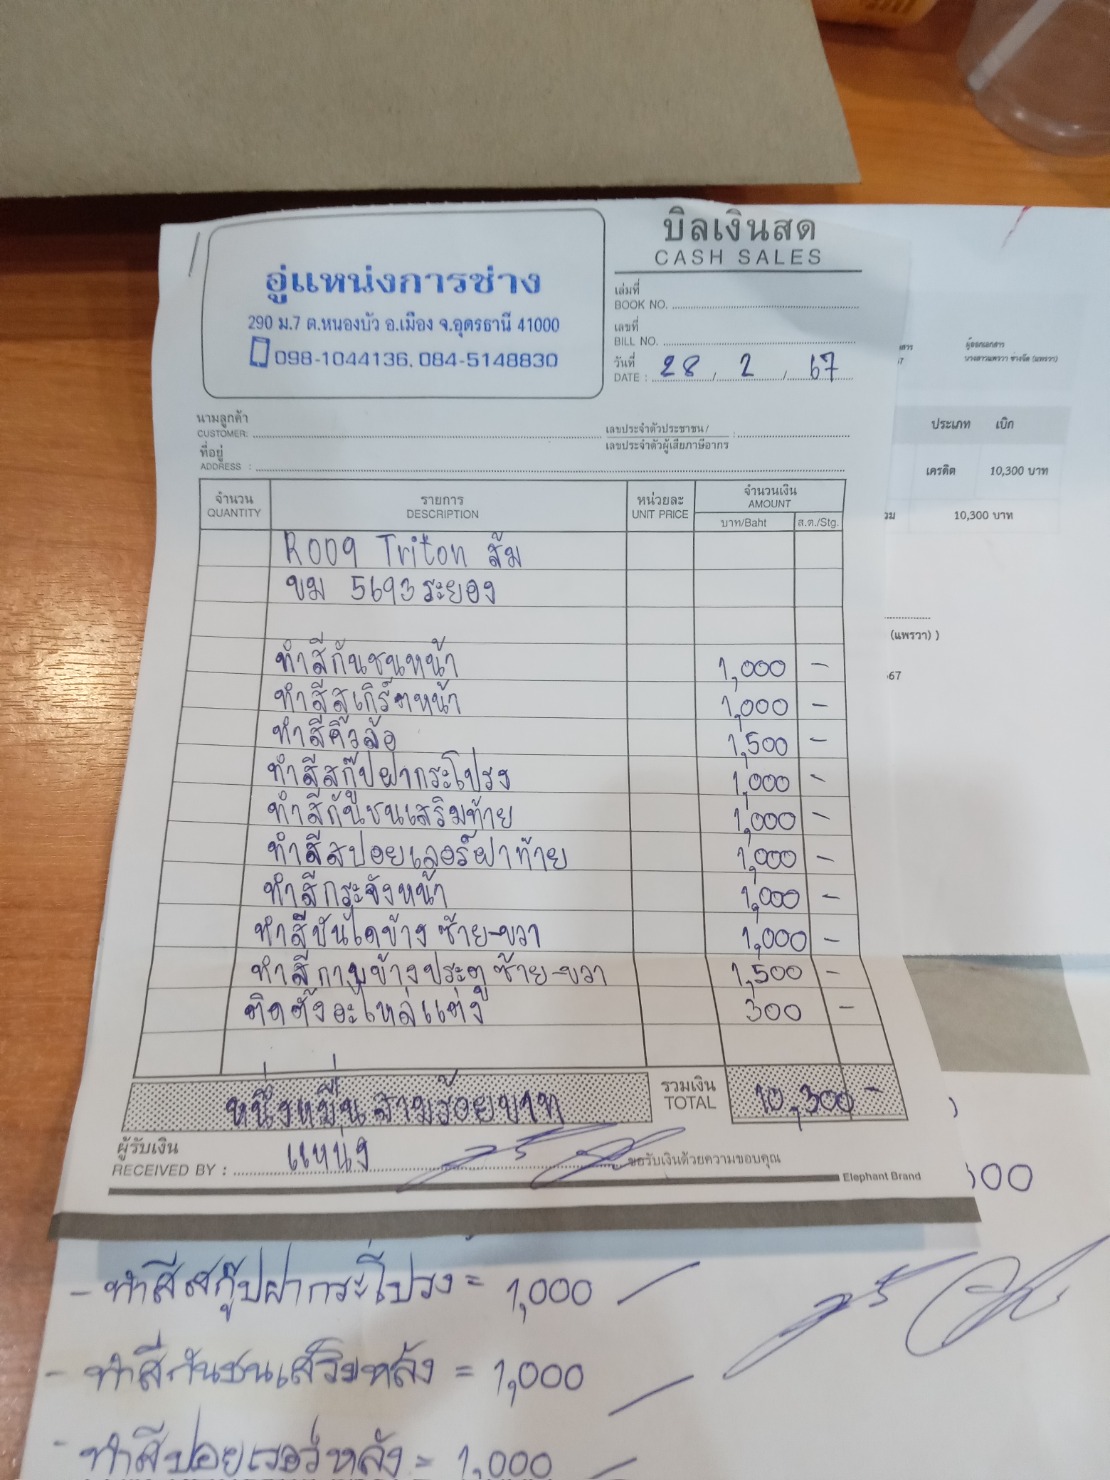 อู่แหน่งการช่าง
290 ม.7 ต.หนองบัว อ.เมือง จ.อุดรธานี 41000
098-1044136, 084-5148830
บิลเงินสด
CASH SALES
เล่มที่
BOOK NO.
เลขที่
BILL NO.
วันที่
DATE : 28, 2, 67
นามลูกค้า
CUSTOMER:
เลขประจำตัวประชาชน /
เลขประจำตัวผู้เสียภาษีอากร
ที่อยู่
ADDRESS :
จำนวน รายการ หน่วยละ จำนวนเงิน
QUANTITY DESCRIPTION UNIT PRICE AMOUNT
บาท/Baht ส.ต./Stg.
R009 Triton ส้ม
ขม 5693 ระยอง
ทำสีกันชนหน้า 1,000 -
ทำสีสเกิร์ตหน้า 1,000 -
ทำสีคิ้วล้อ 1,500 -
ทำสีสกู๊ปฝากระโปรง 1,000 -
ทำสีกันชนเสริมท้าย 1,000 -
ทำสีสปอยเลอร์ฝาท้าย 1,000 -
ทำสีกระจังหน้า 1,000 -
ทำสีบันไดข้าง ซ้าย-ขวา 1,000 -
ทำสีกาบข้างประตู ซ้าย-ขวา 1,500 -
ติดตั้งอะไหล่แต่ง 300 -
หนึ่งหมื่นสามร้อยบาท รวมเงิน TOTAL 10,300 -
ผู้รับเงิน
RECEIVED BY : แหน่ง ขอรับเงินด้วยความขอบคุณ
Elephant Brand
ผู้ออกเอกสาร
ประเภท เบิก
เครดิต 10,300 บาท
10,300 บาท
(แพรวา) )
67
00
- ทำสีสกู๊ปฝากระโปรง = 1,000
- ทำสีกันชนเสริมหลัง = 1,000
- ทำสีปอยเรอร์หลัง = 1,000